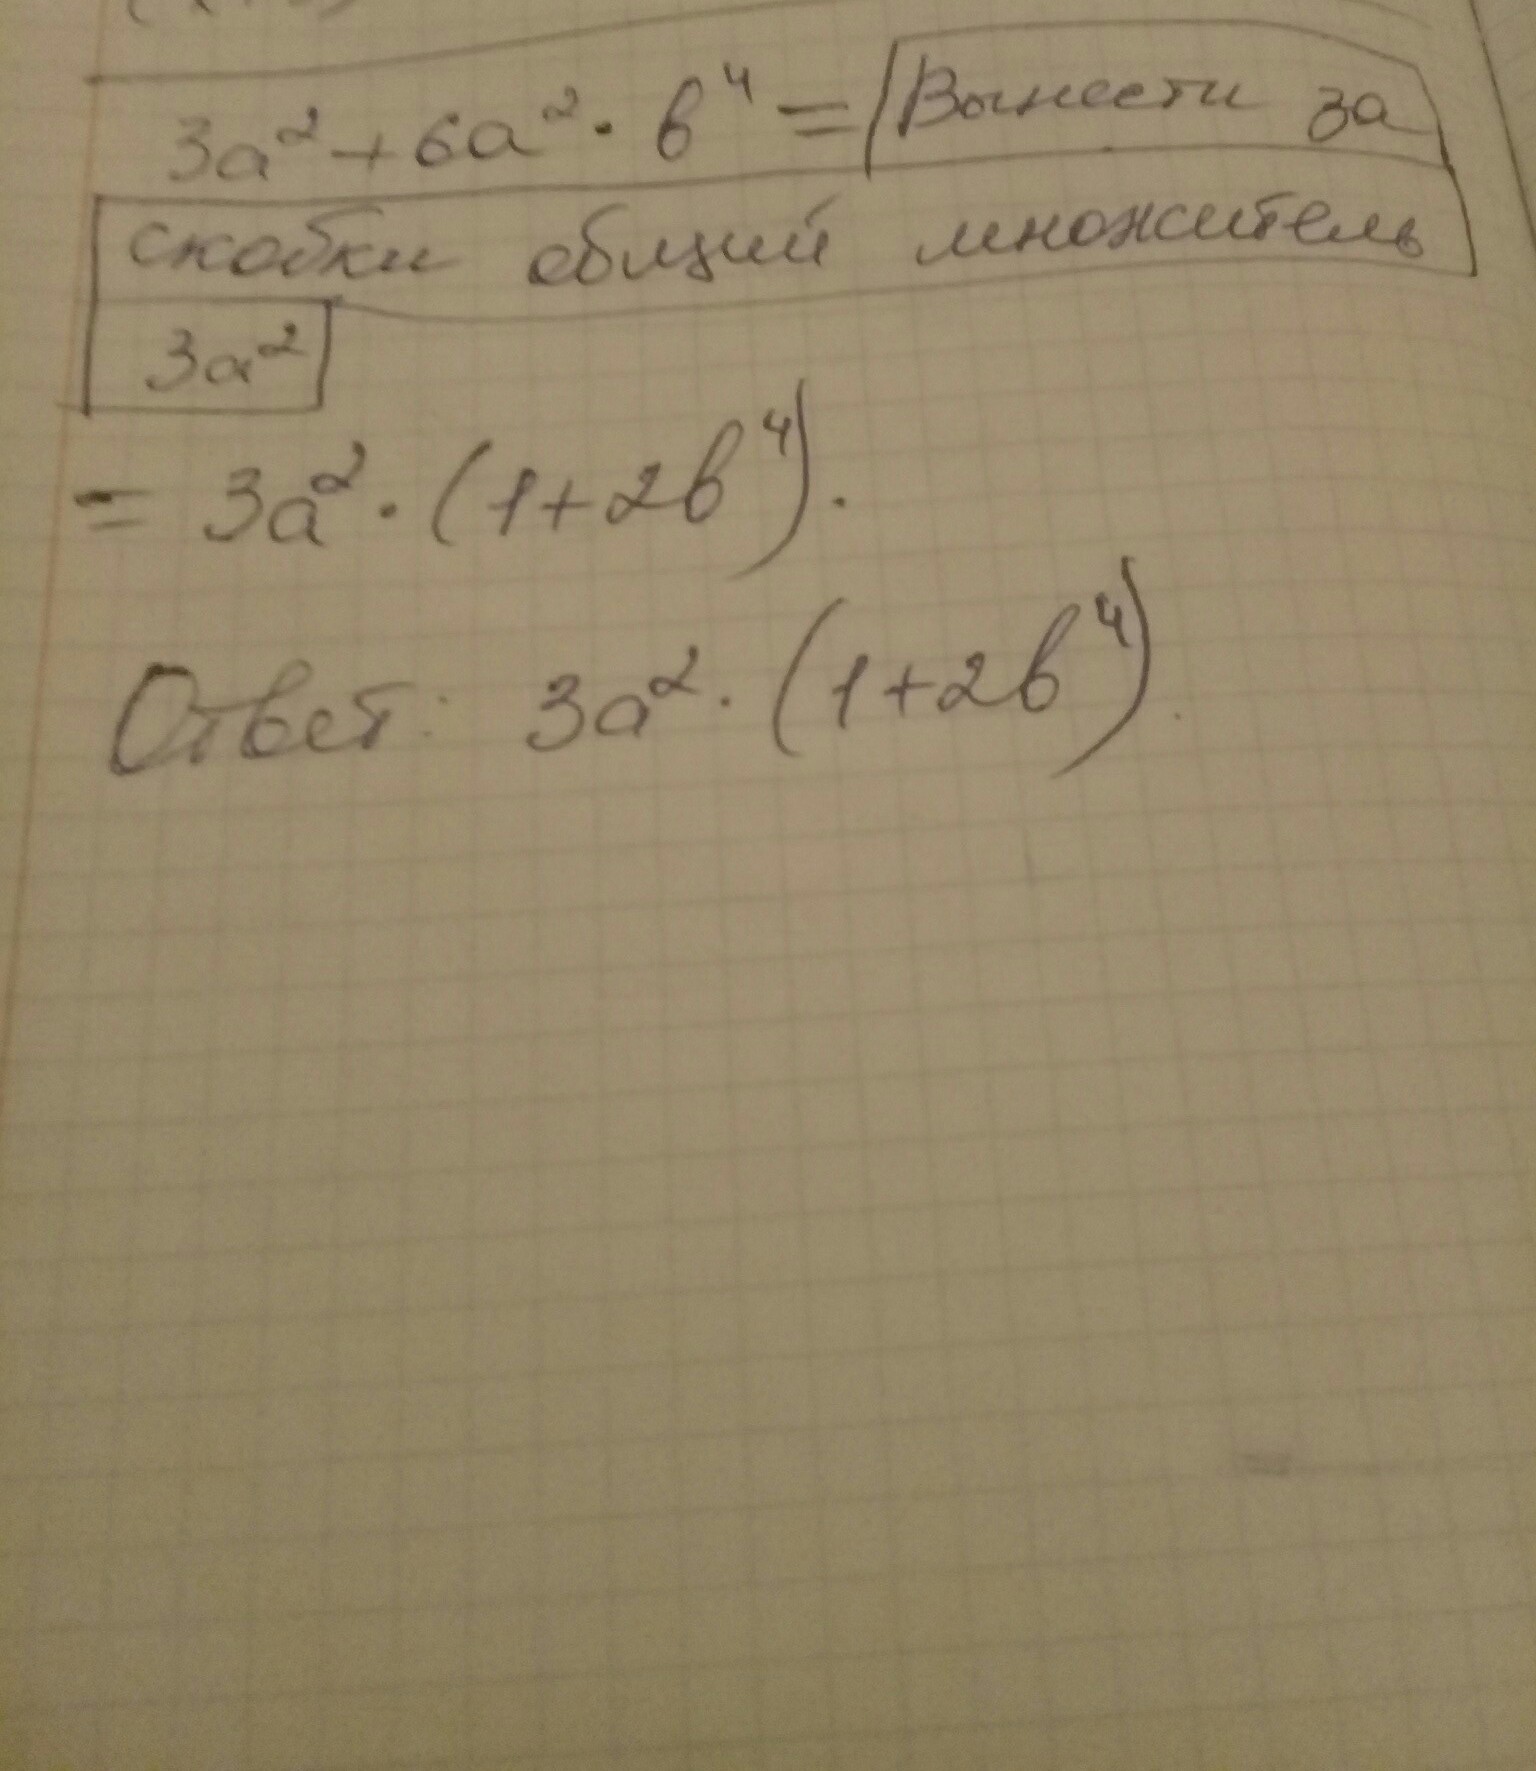 3a² + 6a² · b⁴ = Вынести за
скобки общий множитель
3a²
= 3a² · (1 + 2b⁴).
Ответ: 3a² · (1 + 2b⁴).